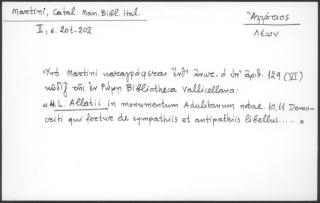 Martini, Catal. Man. Bibl. Ital.
II, σ. 201-202
Ἀλλάτιος
Λέων
Ὑπὸ Martini καταγράφεται ἐνθ' ἀνωτ. ὁ ὑπ' ἀριθ. 129 (VI)
κῶδιξ τῆς ἐν Ῥώμῃ Bibliotheca Vallicellana:
L. Allatii in monumentum Adulitanum notae. 10, 11 Democriti
qui fertur de sympathiis et antipathiis libellus..... »